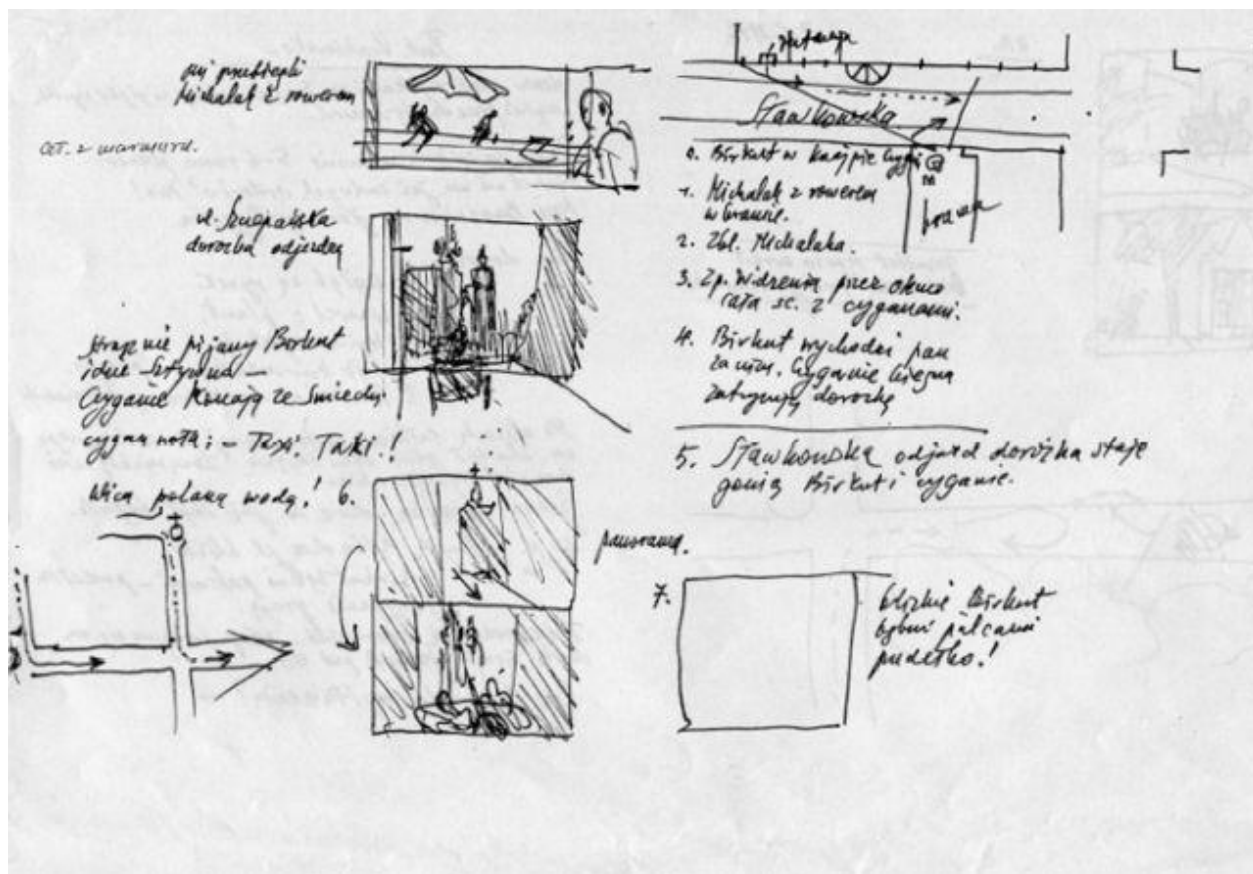 Michalak z rowerem
ul. Szczepańska
dorożka odjeżdża
pijany Birkut
idzie Sztywno —
Cyganie Konają ze Śmiechu
cygan woła: — Taxi. Taxi!
polaną wodą! 6.
panorama.
Sławkowska
0. Birkut w knajpie Cyganie
1. Michalak z rowerem
w bramie.
brama
2. Zbl. Michalaka.
3. Zp. Widzenia przez okno
cała sc. z cyganami.
4. Birkut wychodzi pan
za nim. Cyganie biegną
zatrzymują dorożkę
5. Sławkowska odjazd dorożka staje
gonią Birkut i cyganie.
7.
bliskie Birkut
palcami
pudełko!